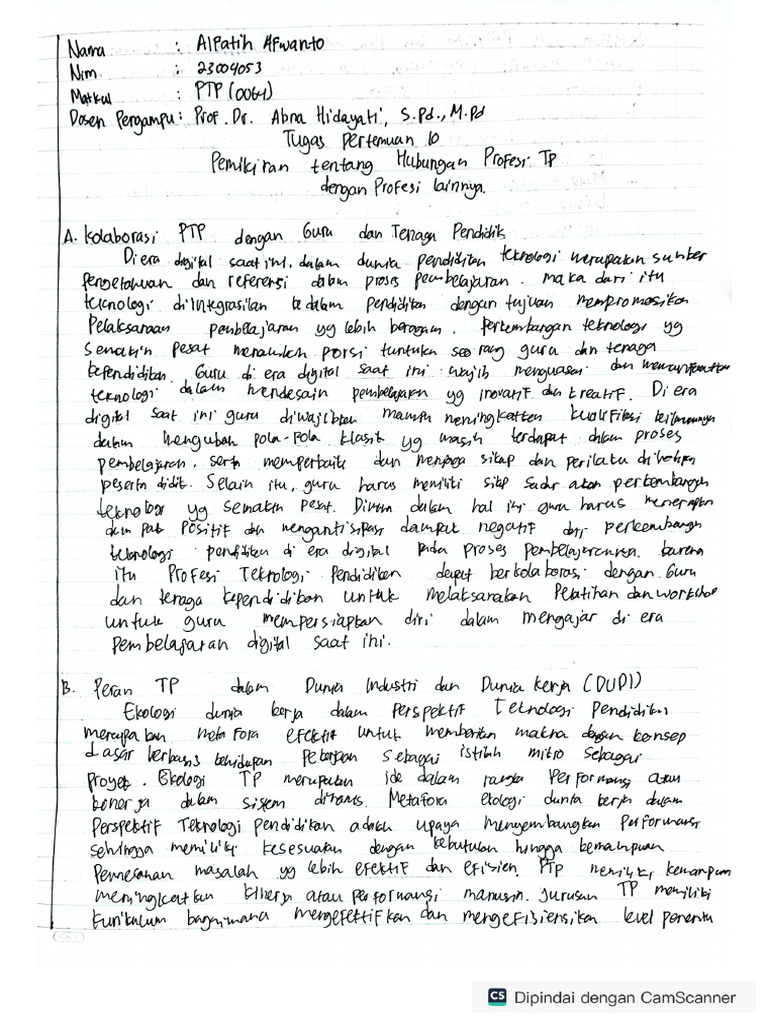 Nama : Alfatih Afwanto
Nim : 23004053
Matkul : PTP (0064)
Dosen Pengampu : Prof. Dr. Abna Hidayati, S.Pd., M.Pd
Tugas Pertemuan 10
Pemikiran tentang Hubungan Profesi TP
dengan Profesi lainnya.
A. Kolaborasi PTP dengan Guru dan Tenaga Pendidik
Di era digital saat ini, dalam dunia pendidikan teknologi merupakan sumber
pengetahuan dan referensi dalam proses pembelajaran. maka dari itu
teknologi diintegrasikan ke dalam pendidikan dengan tujuan mempromosikan
Pelaksanaan pembelajaran yg lebih beragam. Perkembangan teknologi yg
semakin pesat porsi seorang guru dan tenaga
kependidikan. Guru di era digital saat ini wajib menguasai dan memanfaatkan
teknologi dalam mendesain pembelajaran yg inovatif dan kreatif. Di era
digital saat ini guru diwajibkan mampu meningkatkan kualifikasi keilmuannya
dalam mengubah pola-pola klasik yg masih terdapat dalam proses
pembelajaran, serta memperbaiki dan menjaga sikap dan perilaku dihadapan
peserta didik. Selain itu, guru harus memiliki sikap sadar akan perkembangan
teknologi yg semakin pesat. Dimana dalam hal ini guru harus menerapkan
dampak positif dan mengantisipasi dampak negatif dari perkembangan
teknologi pendidikan di era digital pada proses pembelajarannya. karena
itu Profesi Teknologi Pendidikan dapat berkolaborasi dengan Guru
dan tenaga kependidikan untuk melaksanakan Pelatihan dan workshop
untuk guru mempersiapkan diri dalam mengajar di era
pembelajaran digital saat ini.
B. Peran TP dalam Dunia Industri dan Dunia Kerja (DUDI)
Ekologi dunia kerja dalam Perspektif Teknologi Pendidikan
merupakan metafora efektif untuk memberikan makna dengan konsep
dasar berbasis kehidupan sebagai istilah mikro sebagai
proyek. Ekologi TP merupakan ide dalam rangka Performansi atau
kenerja dalam sistem Metafora ekologi dunia kerja dalam
Perspektif Teknologi Pendidikan adalah upaya mengembangkan Performansi
sehingga memiliki kesesuaian dengan kebutuhan hingga kemampuan
Pemecahan masalah yg lebih efektif dan efisien. PTP memiliki kemampuan
meningkatkan kinerja atau performansi manusia. jurusan TP memiliki
kurikulum bagaimana mengefektifkan dan mengefisiensikan level
CS Dipindai dengan CamScanner